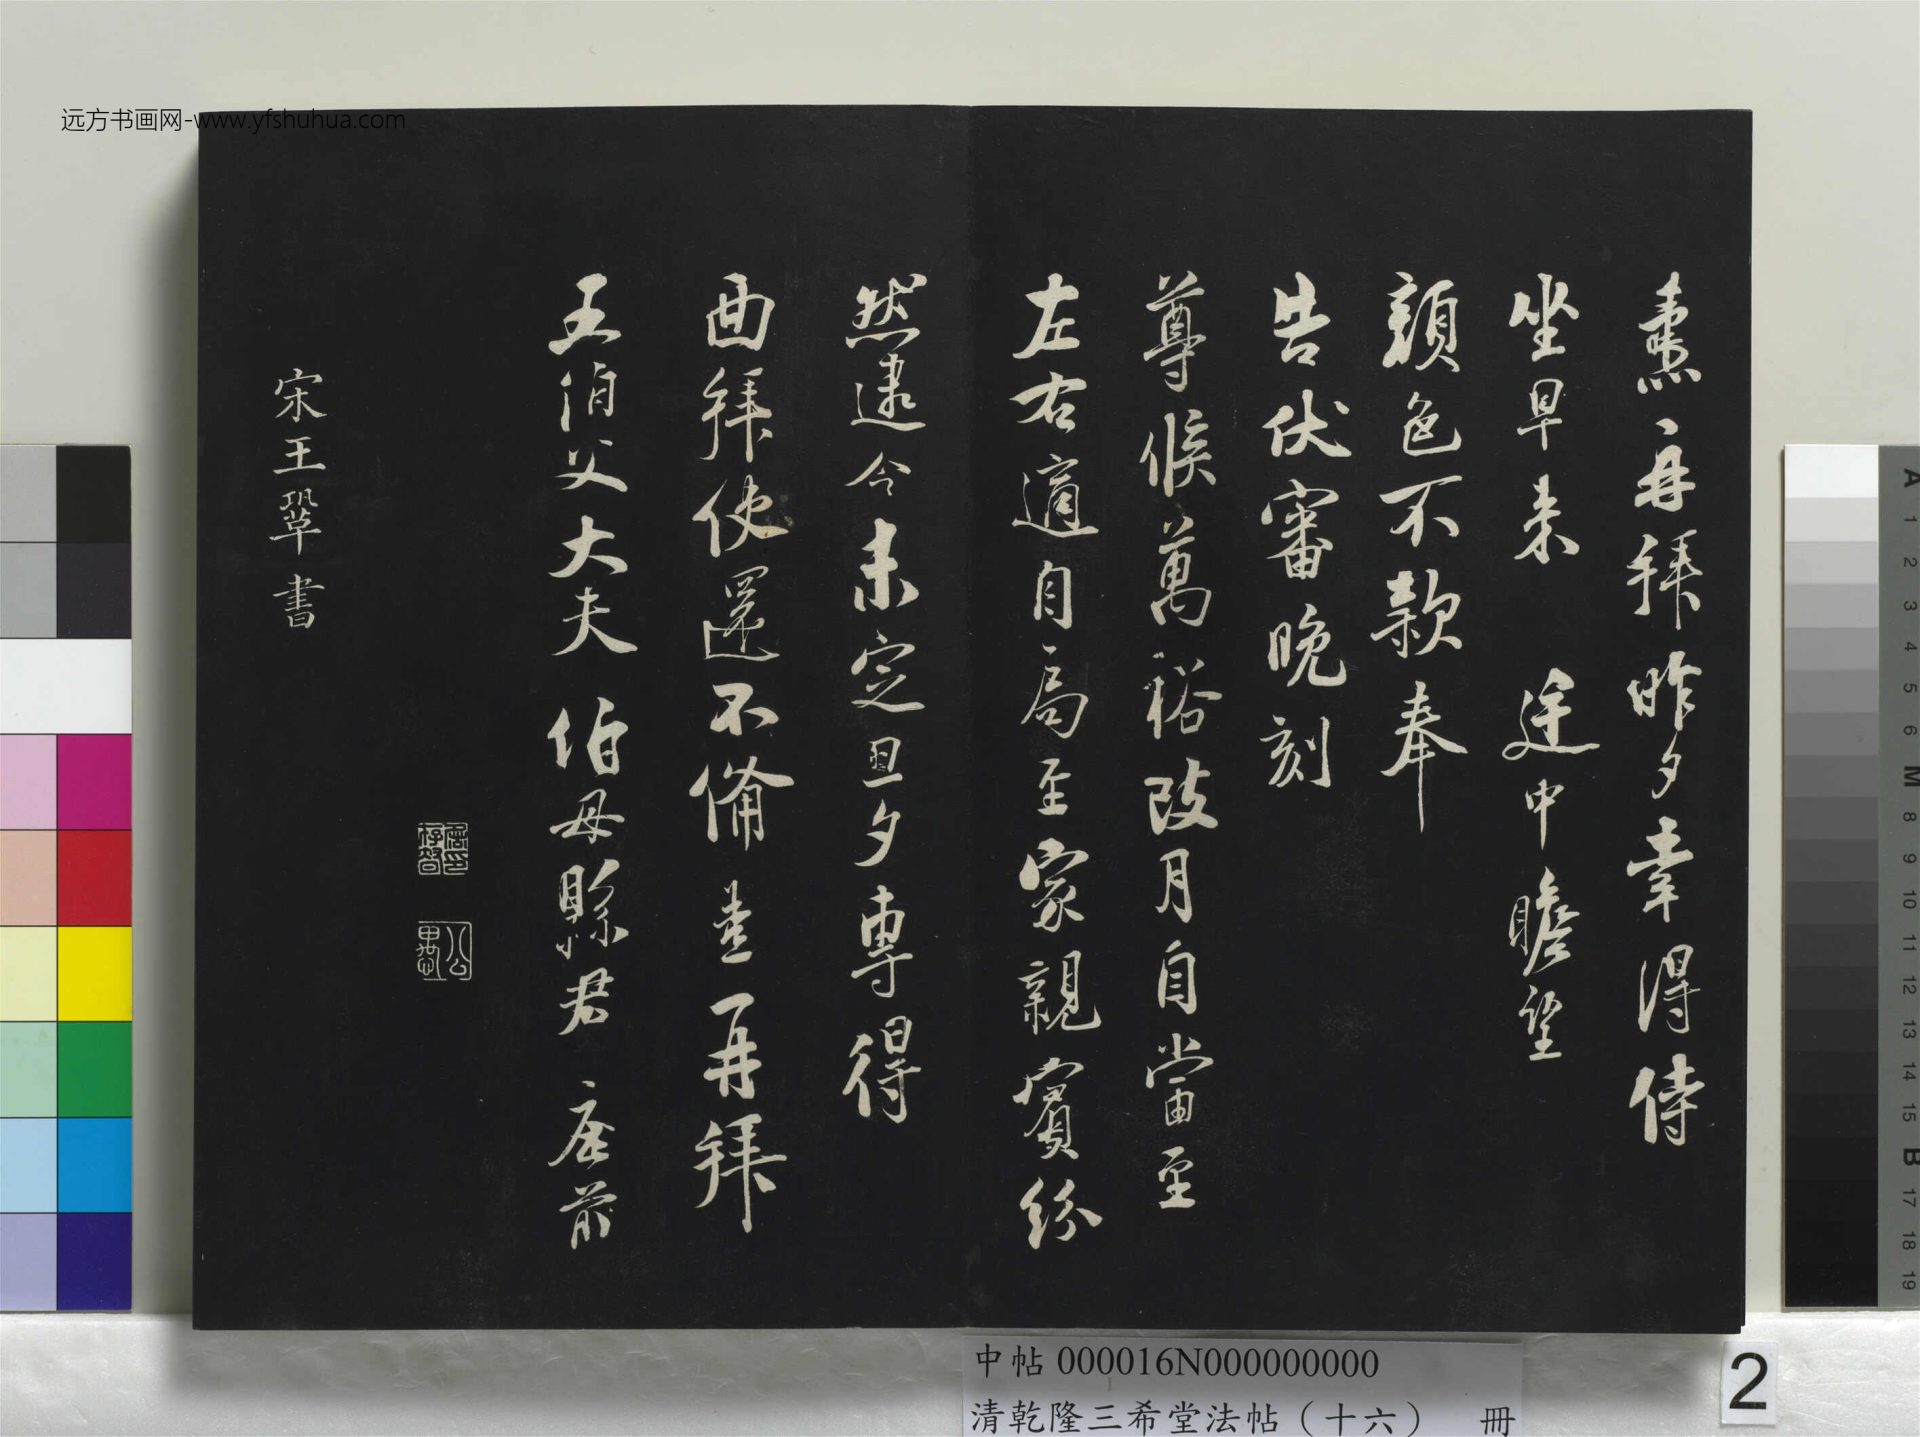 燾再拜昨夕幸得侍
坐早來 廷中瞻望
顏色不款奉
告伏審晚刻
尊候萬裕改月自當至
左右適自局至家親賓紛
然逮今未定旦夕專得
面拜使還不備燾再拜
王伯父大夫 伯母縣君 座前
宋王鞏書
远方书画网-www.yfshuhua.com
中帖 000016N000000000
清乾隆三希堂法帖（十六） 冊
2
A
1
2
3
4
5
6
M
8
9
10
11
12
13
14
15
B
17
18
19